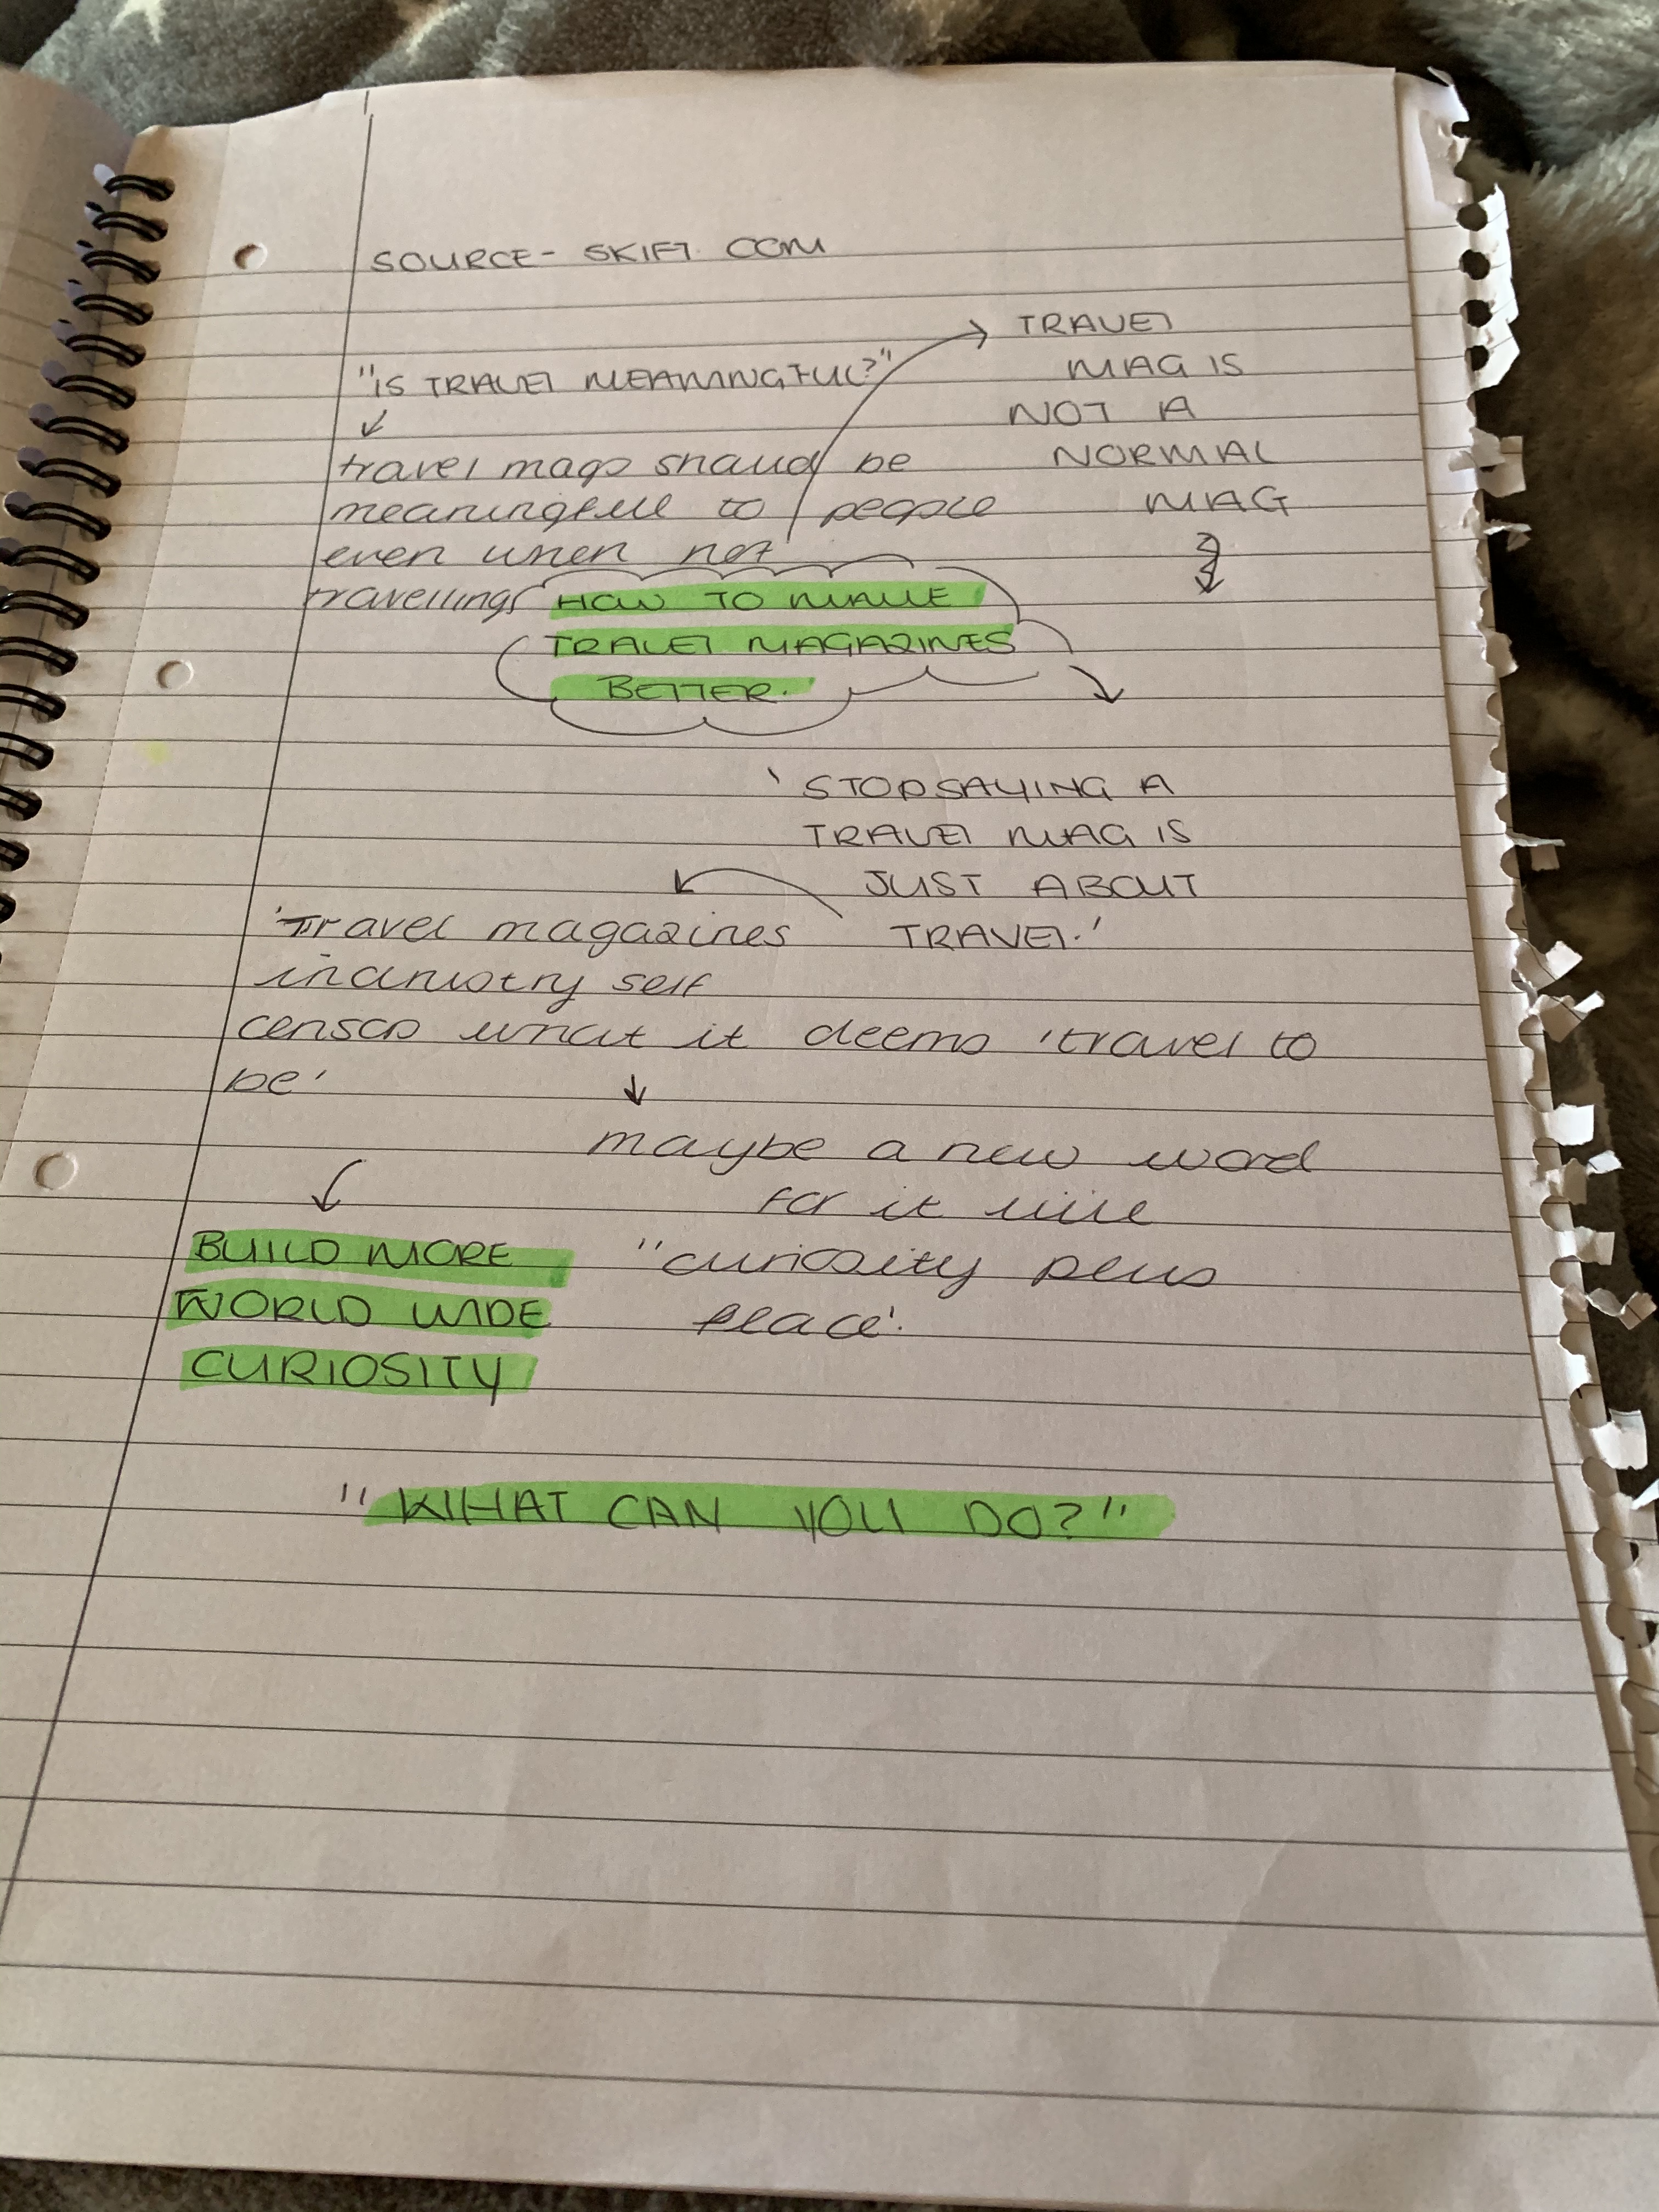 SOURCE- SKIFT. COM
"IS TRAVEL MEANINGFUL?"
travel mags should be
meaningfull to people
even when not
travelling
TRAVEL
MAG IS
NOT A
NORMAL
MAG
HOW TO MAKE
TRAVEL MAGAZINES
BETTER.
'STOP SAYING A
TRAVEL MAG IS
JUST ABOUT
TRAVEL.'
'Travel magazines
industry self
censors what it deems 'travel to
be'
maybe a new word
for it like
"curiosity plus
place'.
BUILD MORE
WORLD WIDE
CURIOSITY
"WHAT CAN YOU DO?"